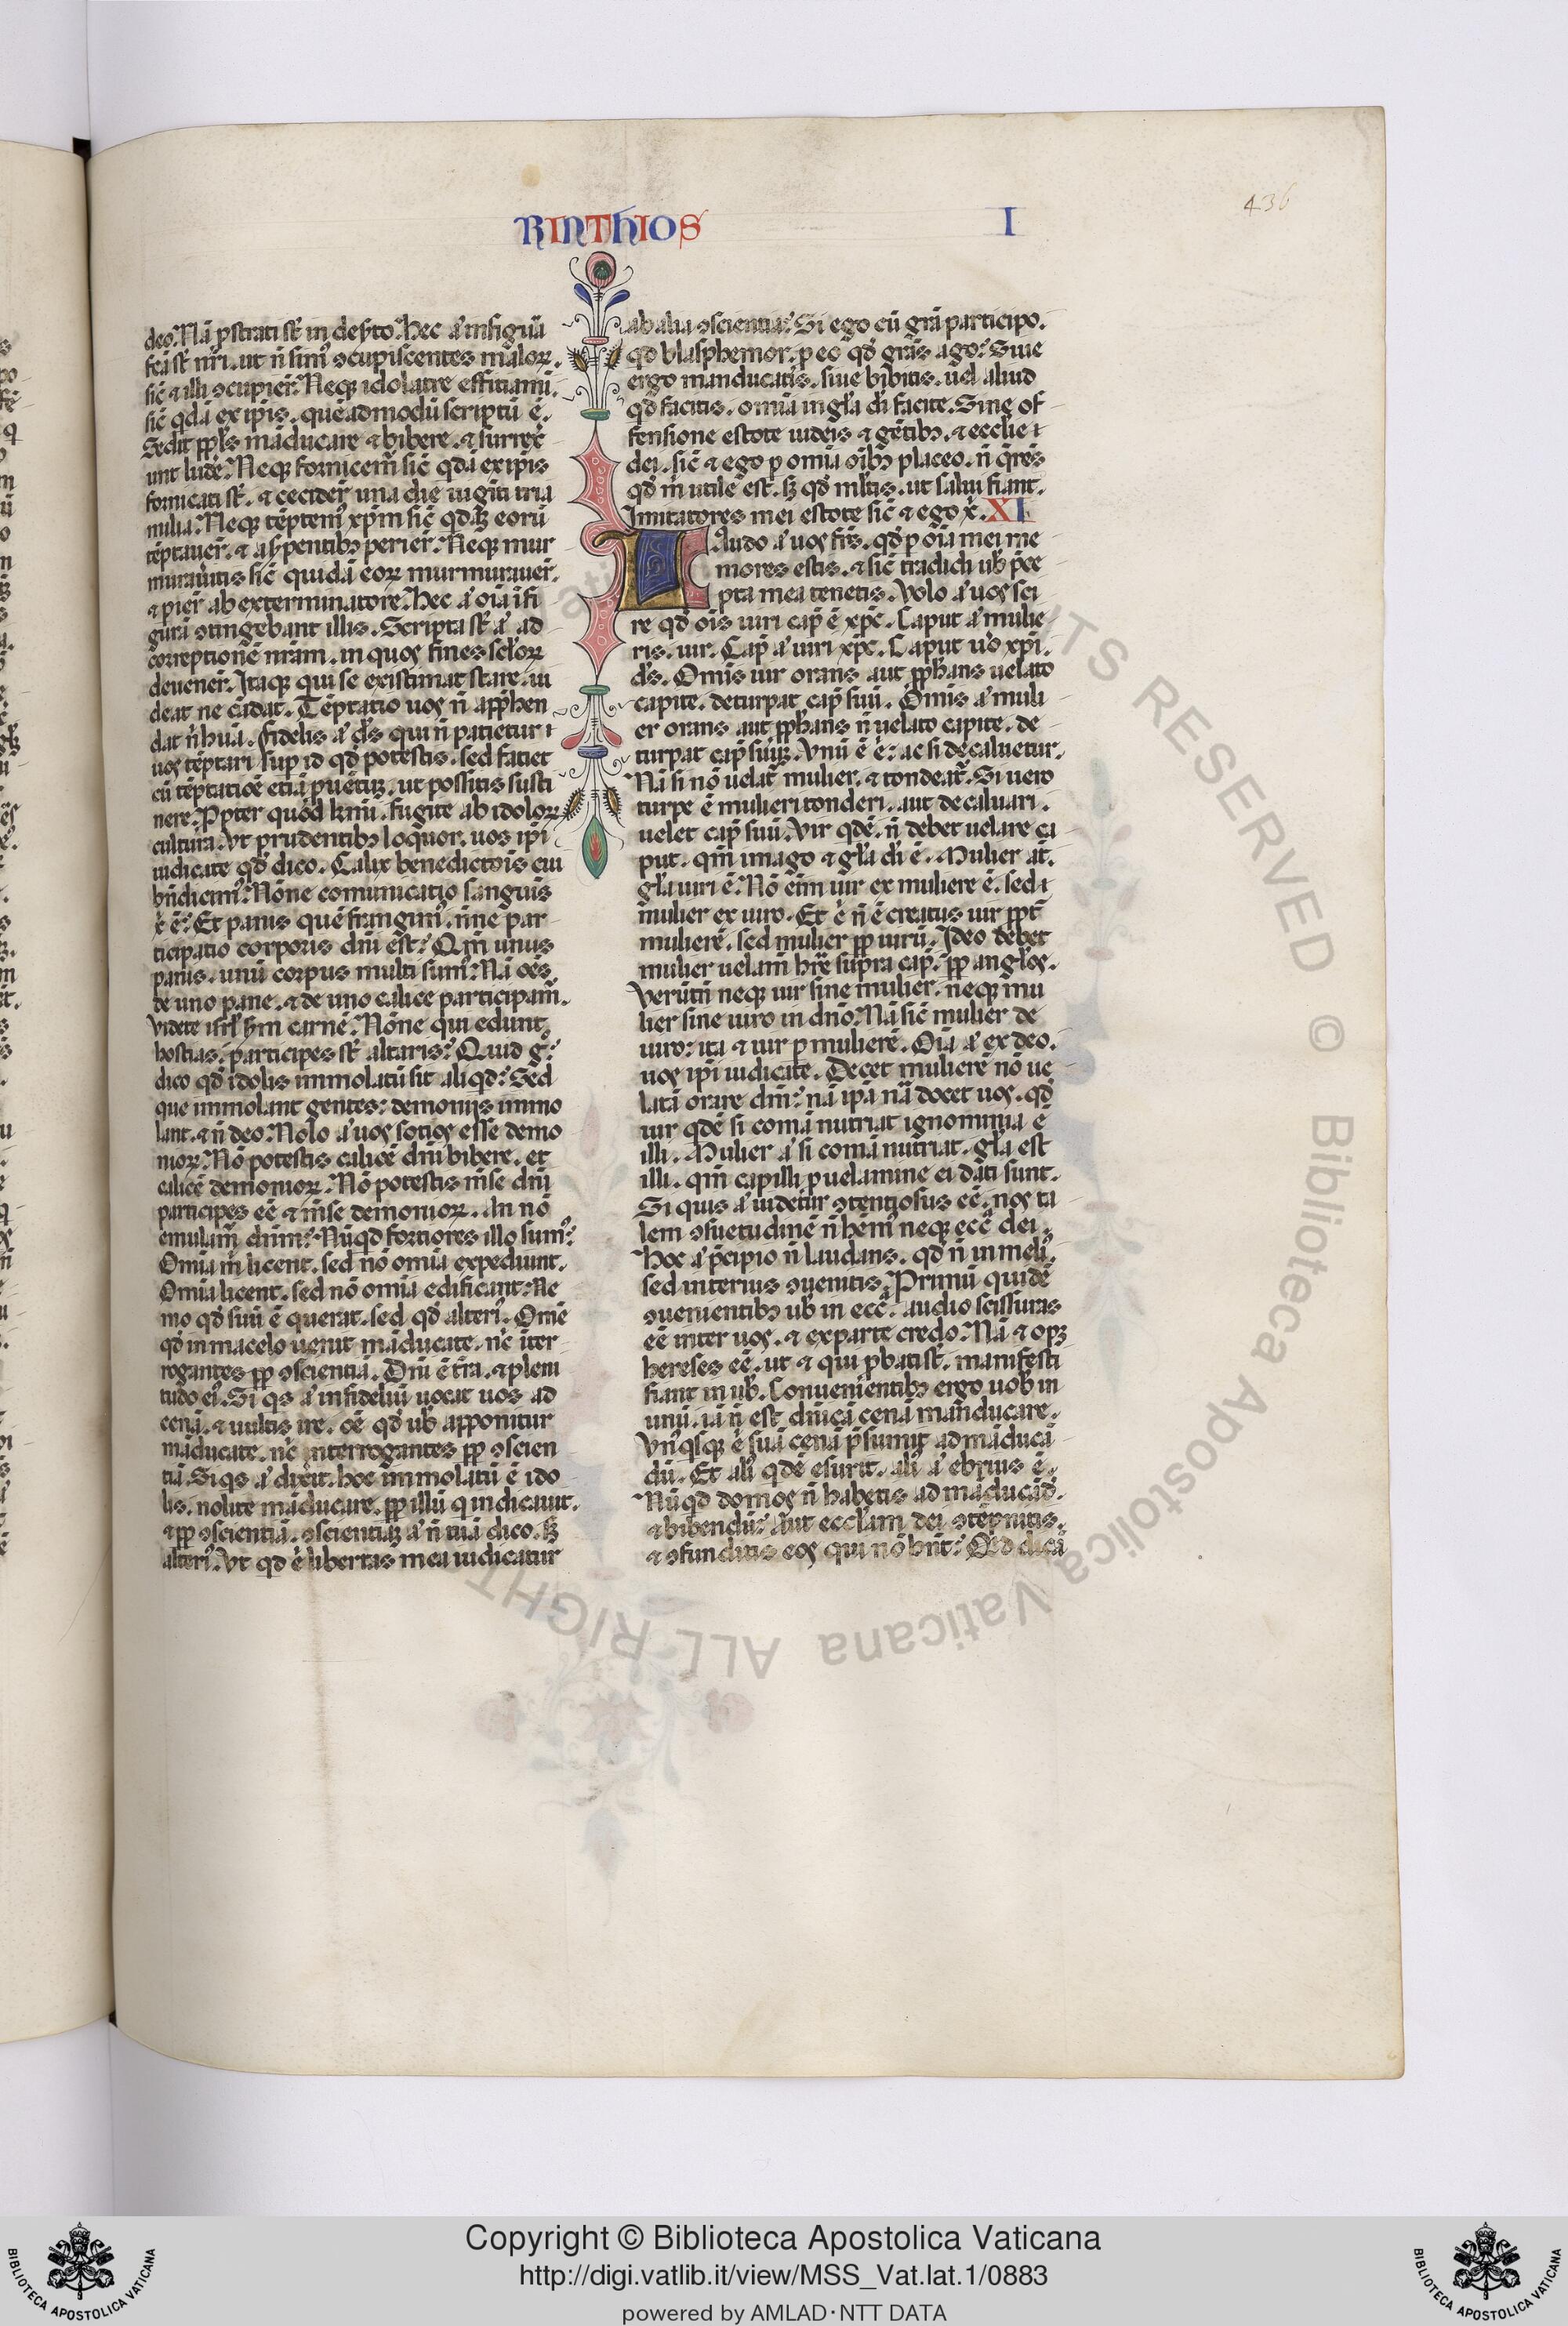 RINTHIOS I
436
deo. Nā ꝓstrati st̄ in deẏto. Hec a͛ in figuā
fēa st̄ nr̄i. ut n̄ simꝰ ꝯcupiscentes maloꝝ.
sic̄ ⁊ illi ꝯcupier̄. Neqꝫ idolatre efficiamī.
sic̄ qdā ex ip̄is. quēadmodū scriptū ē.
Sedit ppl̄s māducare ⁊ bibere. ⁊ surrex̄
unt lude͛. Neqꝫ fornicem̄ sic̄ qdā ex ip̄is
fornicati st̄. ⁊ cecider̄ una die uigīti tria
milia. Neqꝫ tēptemꝰ xp̄m sic̄ qdaꝫ eorū
tēptauer̄. ⁊ a s̄pentibꝫ perier̄. Neqꝫ mur
muraūitis sic̄ quidā eoꝝ murmurauer̄.
⁊ pier̄ ab exterminatore. Hec a͛ oīa ī fi
gurā ꝯtingebant illis. Scripta st̄ a͛ ad
correptionē nr̄am. in quos fines scl̄oꝝ
deuener̄. Itaqꝫ qui se existimat stare. ui
deat ne cadat. Tēptatio uos n̄ app̄hen
dat n̄ hūa. fidelis a͛ d̄s qui n̄ patietur ı
uos tēptari sup id qd̄ potestis. sed faciet
cū tēptatiōe etiā ꝓuētuꝫ. ut possitis susti
nere. Ppter quod kmī. fugite ab idoloꝝ
cultura. Vt prudentibꝫ loquor. uos ip̄i
iudicate qd̄ dico. Calix benedictōis cui
bn̄dicimꝰ. Nōne comunicatio sanguis
x̄ ē? Et panis quē frangimꝰ. n̄ne par
ticipatio corporis dn̄i est? Qm̄ unus
panis. unū corpus multi sumꝰ. Nā oēs
de uno pane. ⁊ de uno calice participam̄.
Videte isrl̄ s̄m carnē. Nōne qui edunt
hostias. participes st̄ altaris? Quid g̊?
dico qd̄ idolis immolatū sit aliqd? Sed
que immolant gentes: demoniis immo
lant. ⁊ n̄ deo. Nolo a͛ uos socios esse demo
nioꝝ. Nō potestis calicē dn̄i bibere. et
calicē demonioꝝ. Nō potestis m̄se dn̄i
participes eē ⁊ m̄se demonioꝝ. An nō
emulam̄ dn̄m? Nūqd fortiores illo sumꝰ?
Omīa m̄ licent. sed nō omīa expediunt.
Omīa licent. sed nō omīa edificant. Ne
mo qd̄ suū ē querat. sed qd̄ alterꝰ. Om̄e
qd̄ in macelo uenit māducate. n̄c īter
rogantes ꝓp ꝯscientiā. Dn̄i ē t̄ra. ⁊ pleni
tudo eiꝰ. Si qs a͛ infideliū uocat uos ad
cenā. ⁊ uultis ire. oē qd̄ ub̄ apponitur
māducate. n̄c interrogantes ꝓp ꝯscien
tiā. Si qs a͛ dix̄it. hoc immolatū ē ido
lis. nolite māducare. ꝓp illū q indicauit.
⁊ ꝓp ꝯscientiā. ꝯscientiaꝫ a͛ n̄ tuā dico. sꝫ
alterꝰ. Vt qd ē libertas mea iudicatur
ab alia ꝯscientia? Si ego cū grā participo.
qd̄ blasphemor. p eo qd̄ grās ago? Siue
ergo manducatis. siue bibitis. uel aliud
qd̄ facitis. omīa in gl̄a d̄i facite. Sine of
fensione estote iudeis ⁊ gētibꝫ. ⁊ ecclīe ı
dei. sic̄ ⁊ ego p omīa oībꝫ placeo. n̄ q̄rēs
qd̄ m̄ utile est. sꝫ qd̄ ml̄tis. ut salui fiant.
Imitatores mei estote sic̄ ⁊ ego x̄. XI
Laudo a͛ uos fr̄s. qd̄ p oīa mei me
mores estis. ⁊ sic̄ tradidi ub̄ p̄ce
pta mea tenetis. Volo a͛ uos sci
re qd̄ oīs uiri cap̄ ē xp̄c. Caput a͛ mulie
ris. uir. Cap̄ a͛ uiri xp̄c. Caput u̓o xp̄i.
d̄s. Omīs uir orans aut ꝓph̄ans uelato
capite. deturpat cap̄ suū. Omīs a͛ muli
er orans aut ꝓph̄ans n̄ uelato capite. de
turpat cap̄ suuꝫ. Vnū ē ē: ac si decaluetur.
Nā si nō uelat̄ mulier. ⁊ tondeat̄. Si uero
turpe ē mulieri tonderi. aut decaluari.
uelet cap̄ suū. Vir qdē. n̄ debet uelare ca
put. qm̄ imago ⁊ gl̄a d̄i ē. Mulier at̄.
gl̄a uiri ē. Nō eīm uir ex muliere ē. sed ı
mulier ex uiro. Et ē n̄ ē creatus uir ꝓpt̄
mulierē. sed mulier ꝓp uirū. Ideo debet
mulier uelam̄ hr̄e supra cap̄. ꝓp angl̄os.
Verūtn̄ neqꝫ uir sine mulier̄. neqꝫ mu
lier sine uiro in dn̄o. Nā sic̄ mulier de
uiro: ita ⁊ uir p mulierē. Oīa a͛ ex deo.
uos ip̄i iudicate. Decet mulierē nō ue
latā orare dm̄? nā ip̄a nā docet uos. qd̄
uir qdē si comā nutriat ignominia ē
illi. Mulier a͛ si comā nutriat. gl̄a est
illi. qm̄ capilli p uelamine ei dati sunt.
Si quis a͛ uidetur ꝯtentiosus eē. nos ta
lem ꝯsuetudinē n̄ hēmꝰ neqꝫ ecc̄ dei.
Hoc a͛ p̄cipio n̄ laudans. qd̄ n̄ in meliꝰ
sed interius ꝯuenitis. Primū quidē
ꝯuenientibꝫ ub̄ in ecc̄. audio scissuras
eē inter uos. ⁊ ex parte credo. Nā ⁊ opꝫ
hereses eē. ut ⁊ qui ꝓbati st̄. manifesti
fiant in ub̄. Conuenientibꝫ ergo uob̄ in
unū. iā n̄ est dn̄icā cenā manducare.
Vnꝰqsqꝫ ē suā cenā p̄sumit ad māducā
dū. Et aliꝰ qdē esurit. aliꝰ a͛ ebrius ē.
Nūqd domos n̄ habetis ad māducād̄.
⁊ bibendū? Aut eccl̄am dei ꝯtēpnitis.
⁊ ꝯfunditis eos qui nō hn̄t? Qid dicā
ALL RIGHTS RESERVED © Biblioteca Apostolica Vaticana
Copyright © Biblioteca Apostolica Vaticana
http://digi.vatlib.it/view/MSS_Vat.lat.1/0883
powered by AMLAD·NTT DATA
BIBLIOTECA APOSTOLICA VATICANA
BIBLIOTECA APOSTOLICA VATICANA